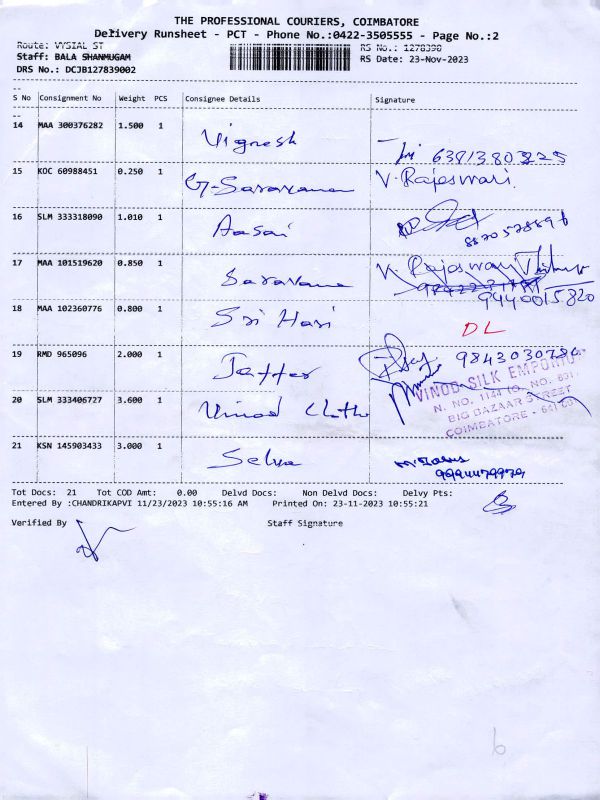 THE PROFESSIONAL COURIERS, COIMBATORE
Delivery Runsheet - PCT - Phone No.:0422-3505555 - Page No.:2
Route: VYSIAL ST RS No.: 1278390
Staff: BALA SHANMUGAM RS Date: 23-Nov-2023
DRS No.: DCJB127839002
S No Consignment No Weight PCS Consignee Details Signature
14 MAA 300376282 1.500 1 Vignesh 6381380225
15 KOC 60988451 0.250 1 G-Saravana V. Rajeswari
16 SLM 333318090 1.010 1 Aasai
17 MAA 101519620 0.850 1 Saravana V. Rajeswari
9440015820
18 MAA 102360776 0.800 1 Sri Hari DL
19 RMD 965096 2.000 1 Jaffer 9843030786
VINOD SILK EMPORIUM
20 SLM 333406727 3.600 1 Vinod N. NO. 1144 (O. NO. 691)
BIG BAZAAR STREET
COIMBATORE
21 KSN 145903433 3.000 1 Selva
9994479979
Tot Docs: 21 Tot COD Amt: 0.00 Delvd Docs: Non Delvd Docs: Delvy Pts:
Entered By :CHANDRIKAPVI 11/23/2023 10:55:16 AM Printed On: 23-11-2023 10:55:21
Verified By Staff Signature
6